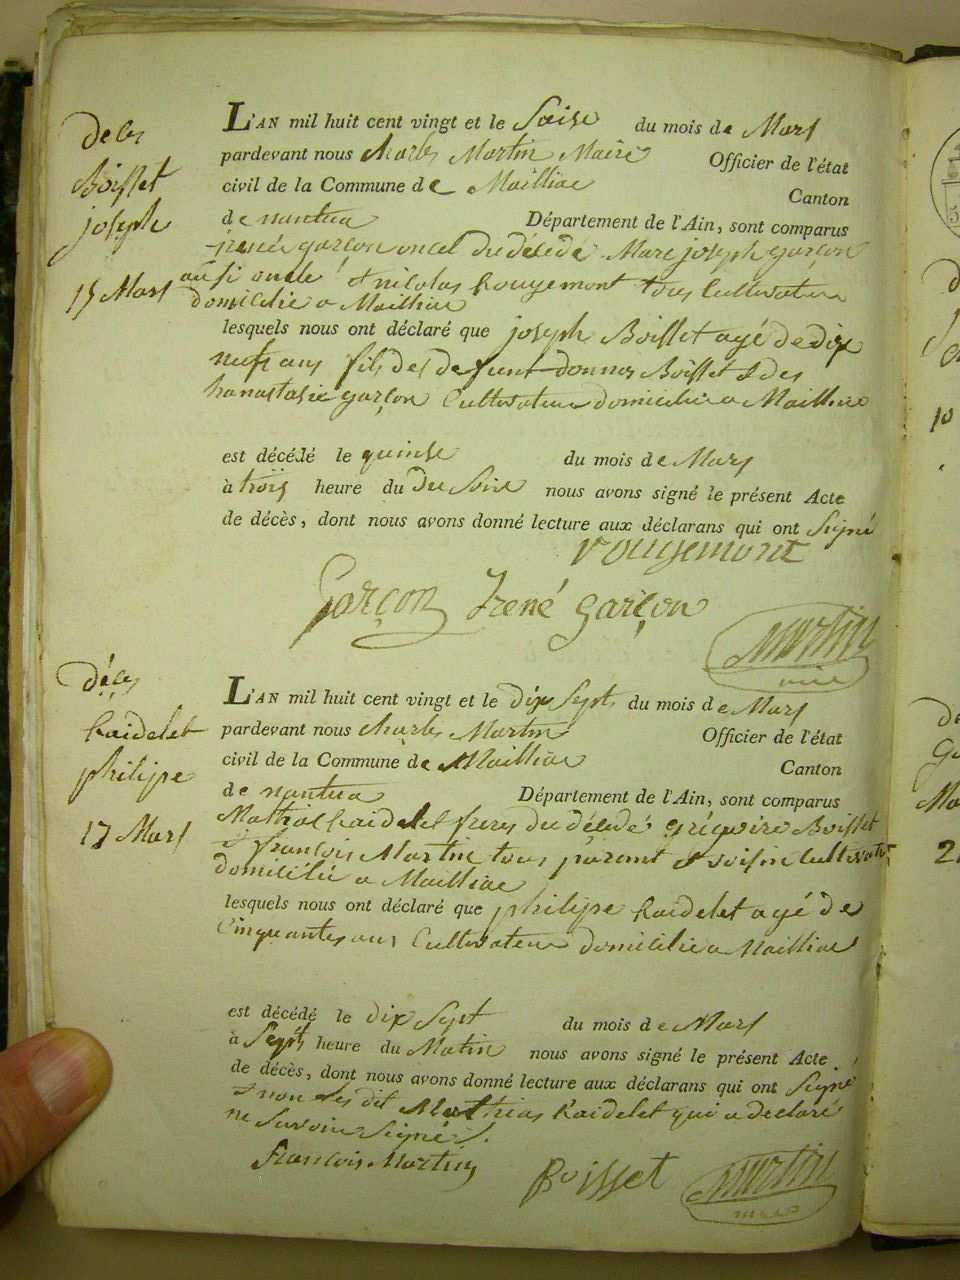 déces
Boisset
joseph
15 Mars
L'AN mil huit cent vingt et le Saise du mois de Mars
pardevant nous charles Martin Maire Officier de l'état
civil de la Commune de Mailliac Canton
de nantua Département de l'Ain, sont comparus
irenée garçon oncel du décédé Marc joseph garçon
ausi oncle & nicolas Rougemont tous Cultivateur
domicilie a Mailliac
lesquels nous ont déclaré que joseph Boisset agé de dix
neufs ans fils des defeunt donnos Boisset & des
hanastasie garçon Cultivateur domicilie a Mailliac
est décédé le quinse du mois de Mars
à trois heure du du Soire nous avons signé le présent Acte
de décès, dont nous avons donné lecture aux déclarans qui ont Signé
rougemont
Garçon Irené garçon
Martin
mire
déces
Raidelet
philipe
17 Mars
L'AN mil huit cent vingt et le dix Sept du mois de Mars
pardevant nous charles Martin Officier de l'état
civil de la Commune de Mailliac Canton
de nantua Département de l'Ain, sont comparus
Raidelet freres du décédé grégoire Boisset
& françois Martin tous parent & voisin Cultivateur
domicilié a Mailliac
lesquels nous ont déclaré que philipe Raidelet agé de
Cinquantes ans Cultivateur domicilie a Mailliac
est décédé le dix Sept du mois de Mars
à Septs heure du Matin nous avons signé le présent Acte
de décès, dont nous avons donné lecture aux déclarans qui ont Signé
& non les dit Mathias Raidelet qui a declaré
ne Savoir Signé
françois Martin
Boisset
Martin
10